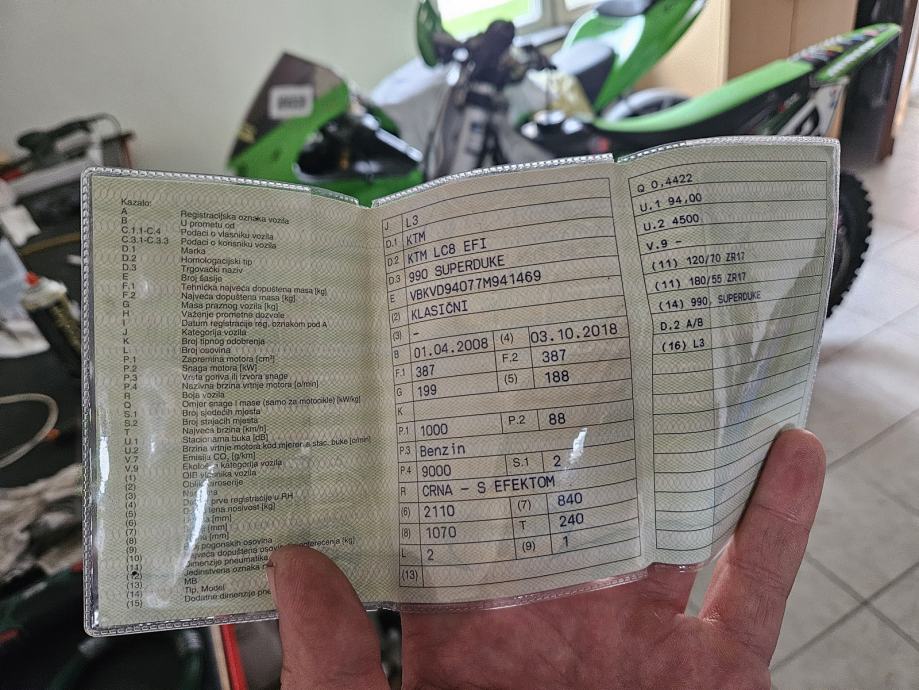 Kazalo:
A Registracijska oznaka vozila
B U prometu od
C.1.1-C.4 Podaci o vlasniku vozila
C.3.1-C.3.3 Podaci o korisniku vozila
D.1 Marka
D.2 Homologacijski tip
D.3 Trgovački naziv
E Broj šasije
F.1 Tehnička najveća dopuštena masa [kg]
F.2 Najveća dopuštena masa [kg]
G Masa praznog vozila [kg]
H Važenje prometne dozvole
I Datum registracije reg. oznakom pod A
J Kategorija vozila
K Broj tipnog odobrenja
L Broj osovina
P.1 Zapremina motora [cm³]
P.2 Snaga motora [kW]
P.3 Vrsta goriva ili izvora snage
P.4 Nazivna brzina vrtnje motora [o/min]
R Boja vozila
Q Omjer snage i mase (samo za motocikle) [kW/kg]
S.1 Broj sjedećih mjesta
S.2 Broj stajaćih mjesta
T Najveća brzina [km/h]
U.1 Stacionarna buka [dB]
U.2 Brzina vrtnje motora kod mjerenja stac. buke [o/min]
V.7 Emisija CO₂ [g/km]
V.9 Ekološka kategorija vozila
(1) OIB vlasnika vozila
(2) Oblik karoserije
(3)
(4) prve registracije u RH
(5) nosivost [kg]
(6) [mm]
(7) [mm]
(8) [mm]
(9) pogonskih osovina
(10) Najveća dopuštena opterećenja [kg]
(11) Dimenzije pneumatika
(12) Jedinstvena oznaka
(13) MB
(14) Tip, Model
(15) Dodatne dimenzije
J L3
D.1 KTM
D.2 KTM LC8 EFI
D.3 990 SUPERDUKE
E VBKVD94077M941469
(2) KLASIČNI
(3) -
B 01.04.2008 (4) 03.10.2018
F.1 387 F.2 387
G 199 (5) 188
K
P.1 1000 P.2 88
P.3 Benzin
P.4 9000 S.1 2
R CRNA - S EFEKTOM
(6) 2110 (7) 840
(8) 1070 T 240
L 2 (9) 1
(13)
Q 0,4422
U.1 94,00
U.2 4500
V.9 -
(11) 120/70 ZR17
(11) 180/55 ZR17
(14) 990, SUPERDUKE
D.2 A/B
(16) L3